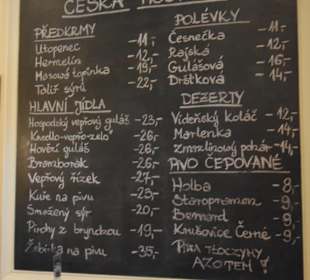 ČESKÁ
PŘEDKRMY
Utopenec -11,-
Hermelín -12,-
Masová topinka -19,-
Talíř sýrů -22,-
HLAVNÍ JÍDLA
Hospodský vepřový guláš -23,-
Knedlo-vepřo-zelo -26,-
Hovězí guláš -26,-
Bramborák -26,-
Vepřový řízek -27,-
Kuře na pivu -23,-
Smažený sýr -20,-
Pirohy z bryndzou -19,-
Žebírka na pivu -35,-
POLÉVKY
Česnečka -11,-
Rajská -12,-
Gulášová -16,-
Dršťková -14,-
DEZERTY
Vídeňský koláč -12,-
Marlenka -14,-
Zmrzlinový pohár -14,-
PIVO ČEPOVANÉ
Holba -8,-
Staropramen -9,-
Bernard -9,-
Krušovice Černé -9,-
PIWA TŁOCZYMY
AZOTEM